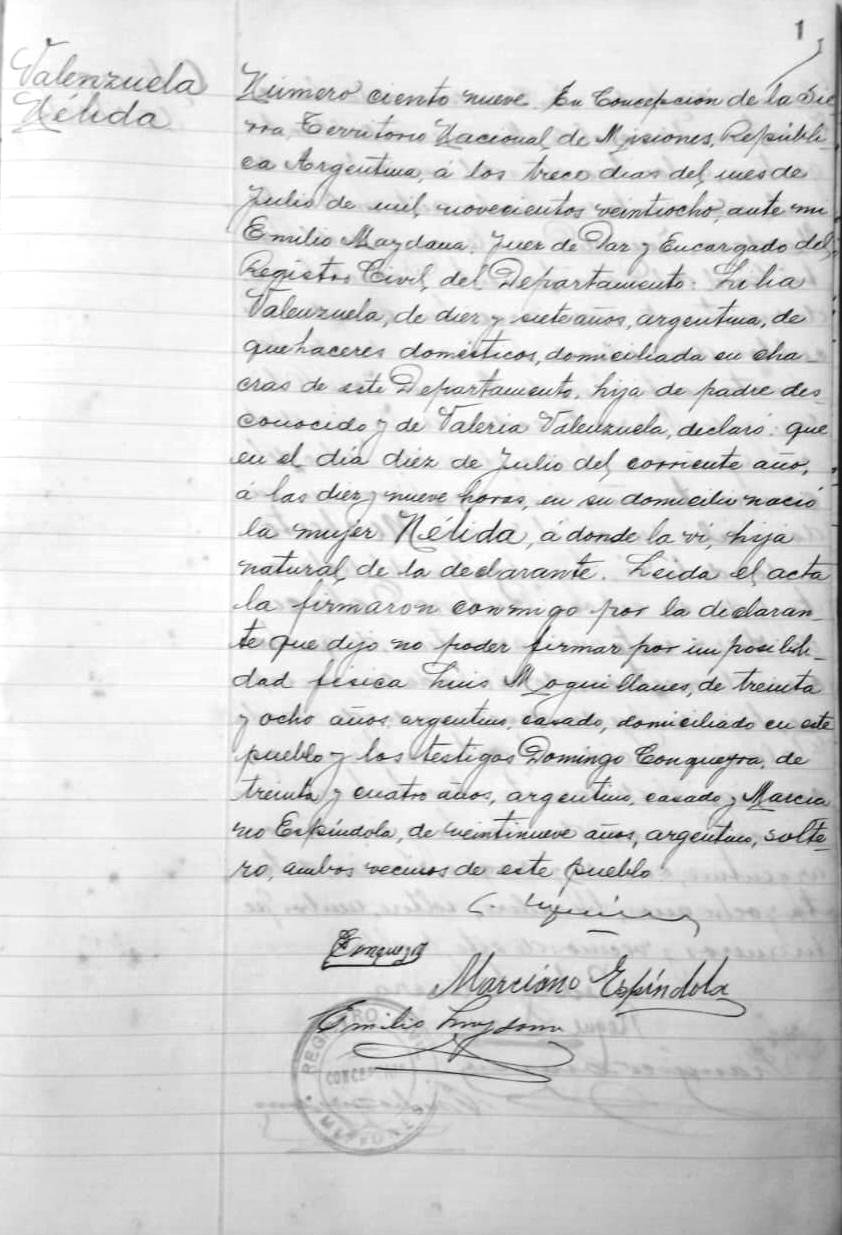 1
Valenzuela
Nélida
Número ciento nueve. En Concepción de la Sie-
rra, Territorio Nacional de Misiones, Repúbli-
ca Argentina, á los trece dias del mes de
Julio de mil novecientos veintiocho, ante mi
Emilio Maydana, Juez de Paz y Encargado del
Registro Civil del Departamento: Lelia
Valenzuela, de diez y siete años, argentina, de
quehaceres domésticos, domiciliada en cha
cras de este Departamento, hija de padre des-
conocido y de Valeria Valenzuela, declaró: que
en el día diez de Julio del corriente año,
á las diez y nueve horas, en su domicilio nació
la mujer Nélida, á donde la vi, hija
natural de la declarante. Leida el acta
la firmaron conmigo por la declaran-
te que dijo no poder firmar por imposibili-
dad fisica Luis Moquillanes, de treinta
y ocho años, argentino, casado, domiciliado en este
pueblo y los testigos Domingo Conqueyra, de
treinta y cuatro años, argentino, casado y Marcia
no Espíndola, de veintinueve años, argentino, solte-
ro, ambos vecinos de este pueblo
Marciano Espíndola
Emilio Maydana
REGISTRO
CONCEPCION